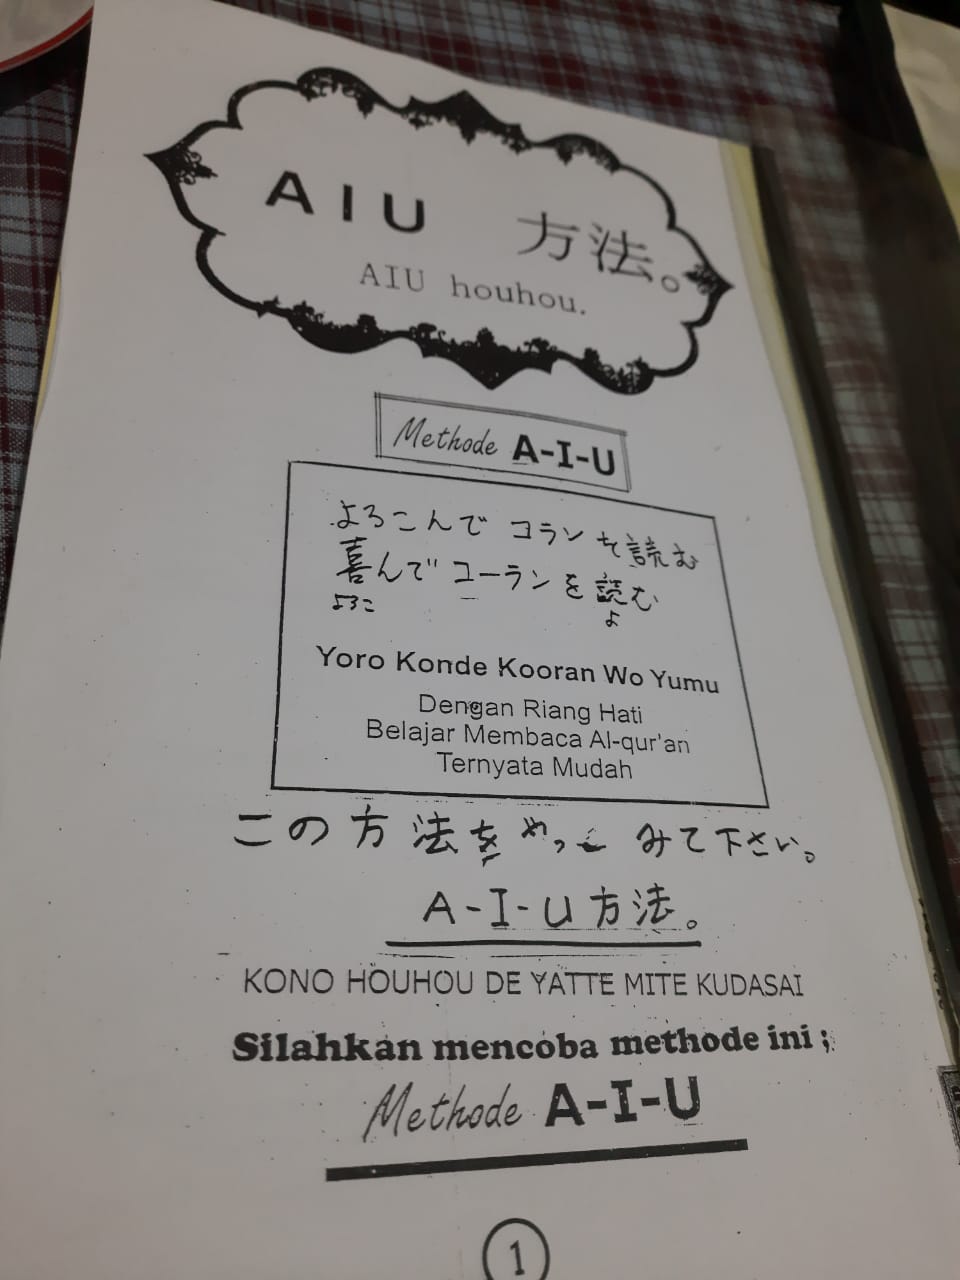 AIU 方法。
AIU houhou.
Methode A-I-U
よろこんで コランを読む
喜んで コーランを読む
よろこ よ
Yoro Konde Kooran Wo Yumu
Dengan Riang Hati
Belajar Membaca Al-qur'an
Ternyata Mudah
この方法を やって みて下さい。
A-I-U方法。
KONO HOUHOU DE YATTE MITE KUDASAI
Silahkan mencoba methode ini ;
Methode A-I-U
1